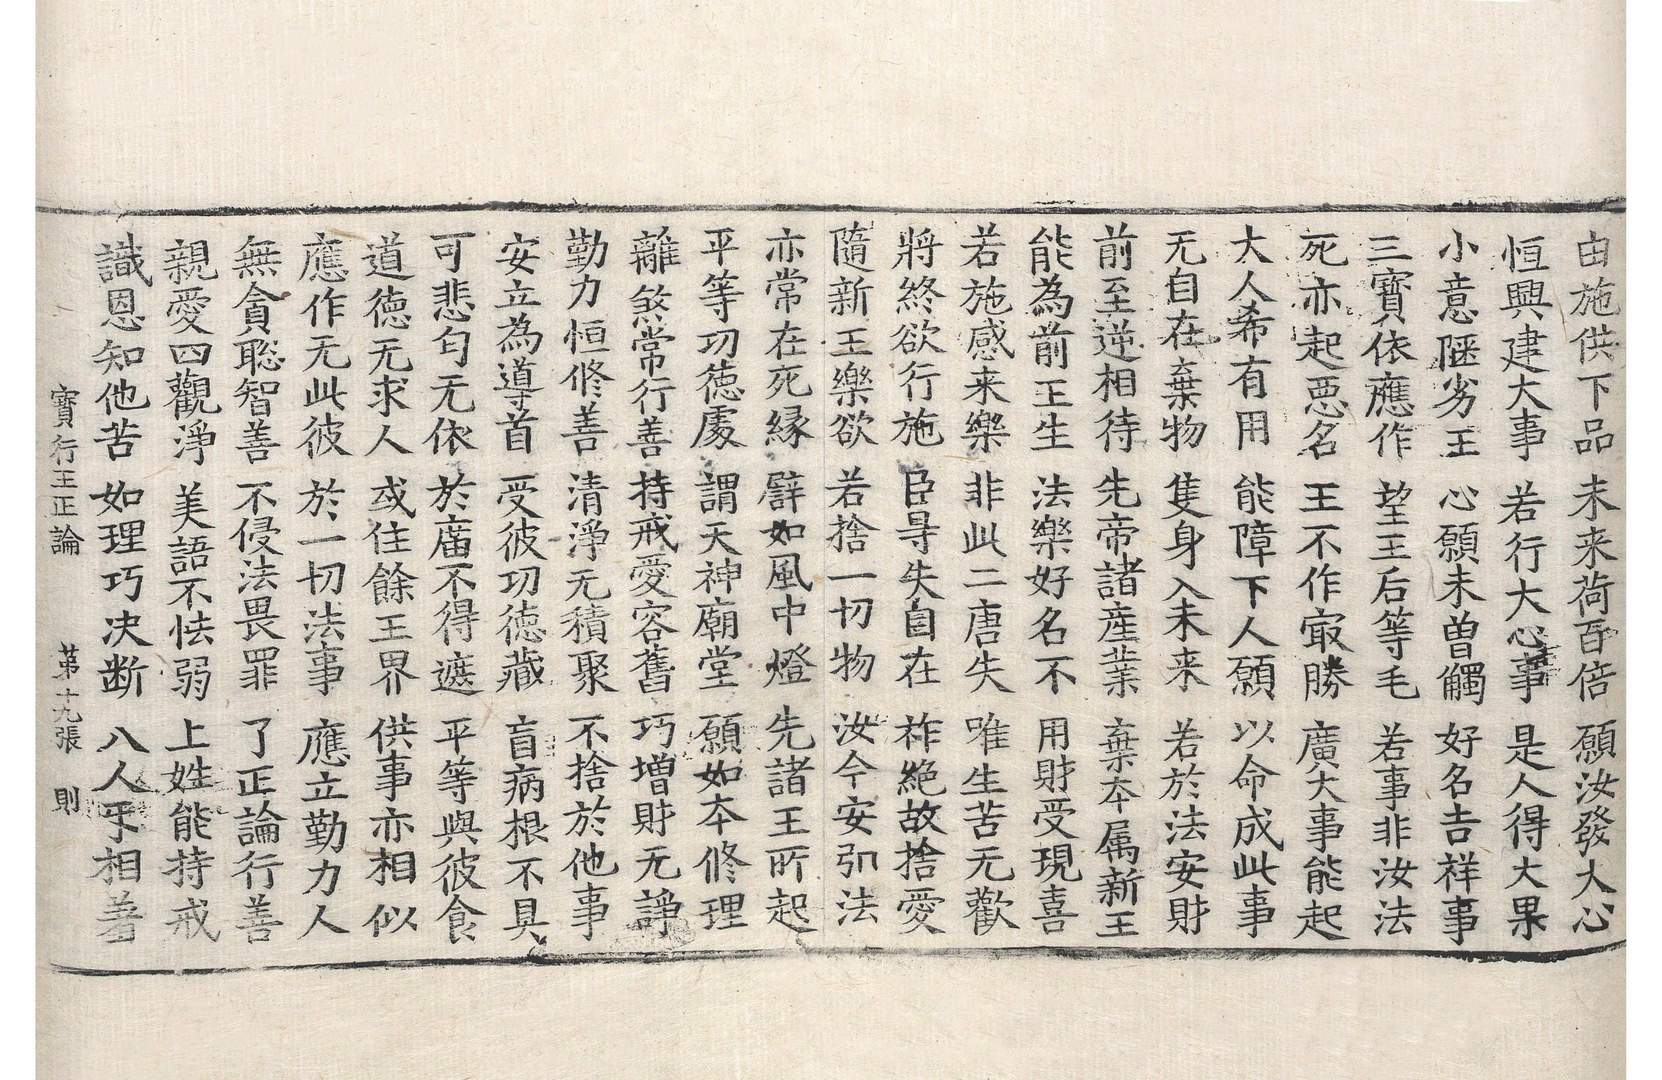 由施供下品 未来荷百倍 願汝發大心
恒興建大事 若行大心事 是人得大果
小意陋劣王 心願未曽觸 好名吉祥事
三寶依應作 望王后等毛 若事非汝法
死亦起悪名 王不作㝡勝 廣大事能起
大人希有用 能障下人願 以命成此事
无自在棄物 隻身入未来 若於法安財
前至逆相待 先帝諸産業 棄本属新王
能為前王生 法樂好名不 用財受現喜
若施感来樂 非此二唐失 唯生苦无歡
將終欲行施 臣㝵失自在 祚絶故捨愛
隨新王樂欲 若捨一切物 汝今安弘法
亦常在死縁 譬如風中燈 先諸王所起
平等功徳處 謂天神廟堂 願如本修理
離煞常行善 持戒愛容舊 巧増財无諍
勤力恒修善 清淨无積聚 不捨於他事
安立為導首 受彼功徳藏 盲病根不具
可悲匄无依 於庿不得遮 平等與彼食
道徳无求人 或住餘王界 供事亦相似
應作无此彼 於一切法事 應立勤力人
無貪聡智善 不侵法畏罪 了正論行善
親愛四觀淨 美語不怯弱 上姓能持戒
識恩知他苦 如理巧决断 八人互相著
寶行王正論 第十九張 則